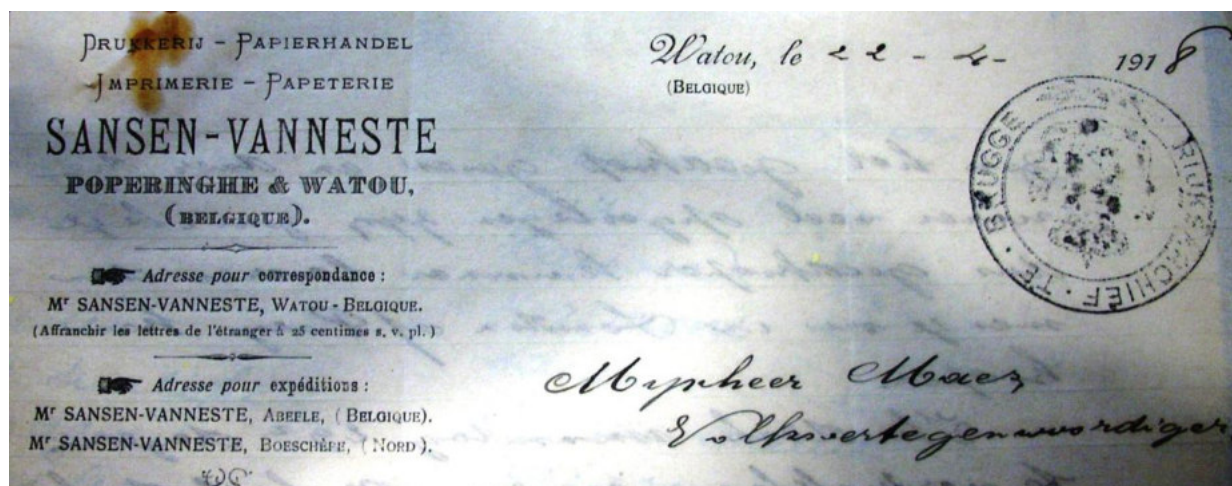 DRUKKERIJ – PAPIERHANDEL
IMPRIMERIE – PAPETERIE
SANSEN-VANNESTE
POPERINGHE & WATOU,
(BELGIQUE).
Adresse pour correspondance :
Mr SANSEN-VANNESTE, WATOU - BELGIQUE.
(Affranchir les lettres de l'étranger à 25 centimes s. v. pl.)
Adresse pour expéditions :
Mr SANSEN-VANNESTE, ABEELE, (BELGIQUE).
Mr SANSEN-VANNESTE, BOESCHÈPE, (NORD).
Watou, le 22 - 4 - 1918
(BELGIQUE)
RIJKSARCHIEF · TE · BRUGGE
Mynheer Maes
Volksvertegenwoordiger